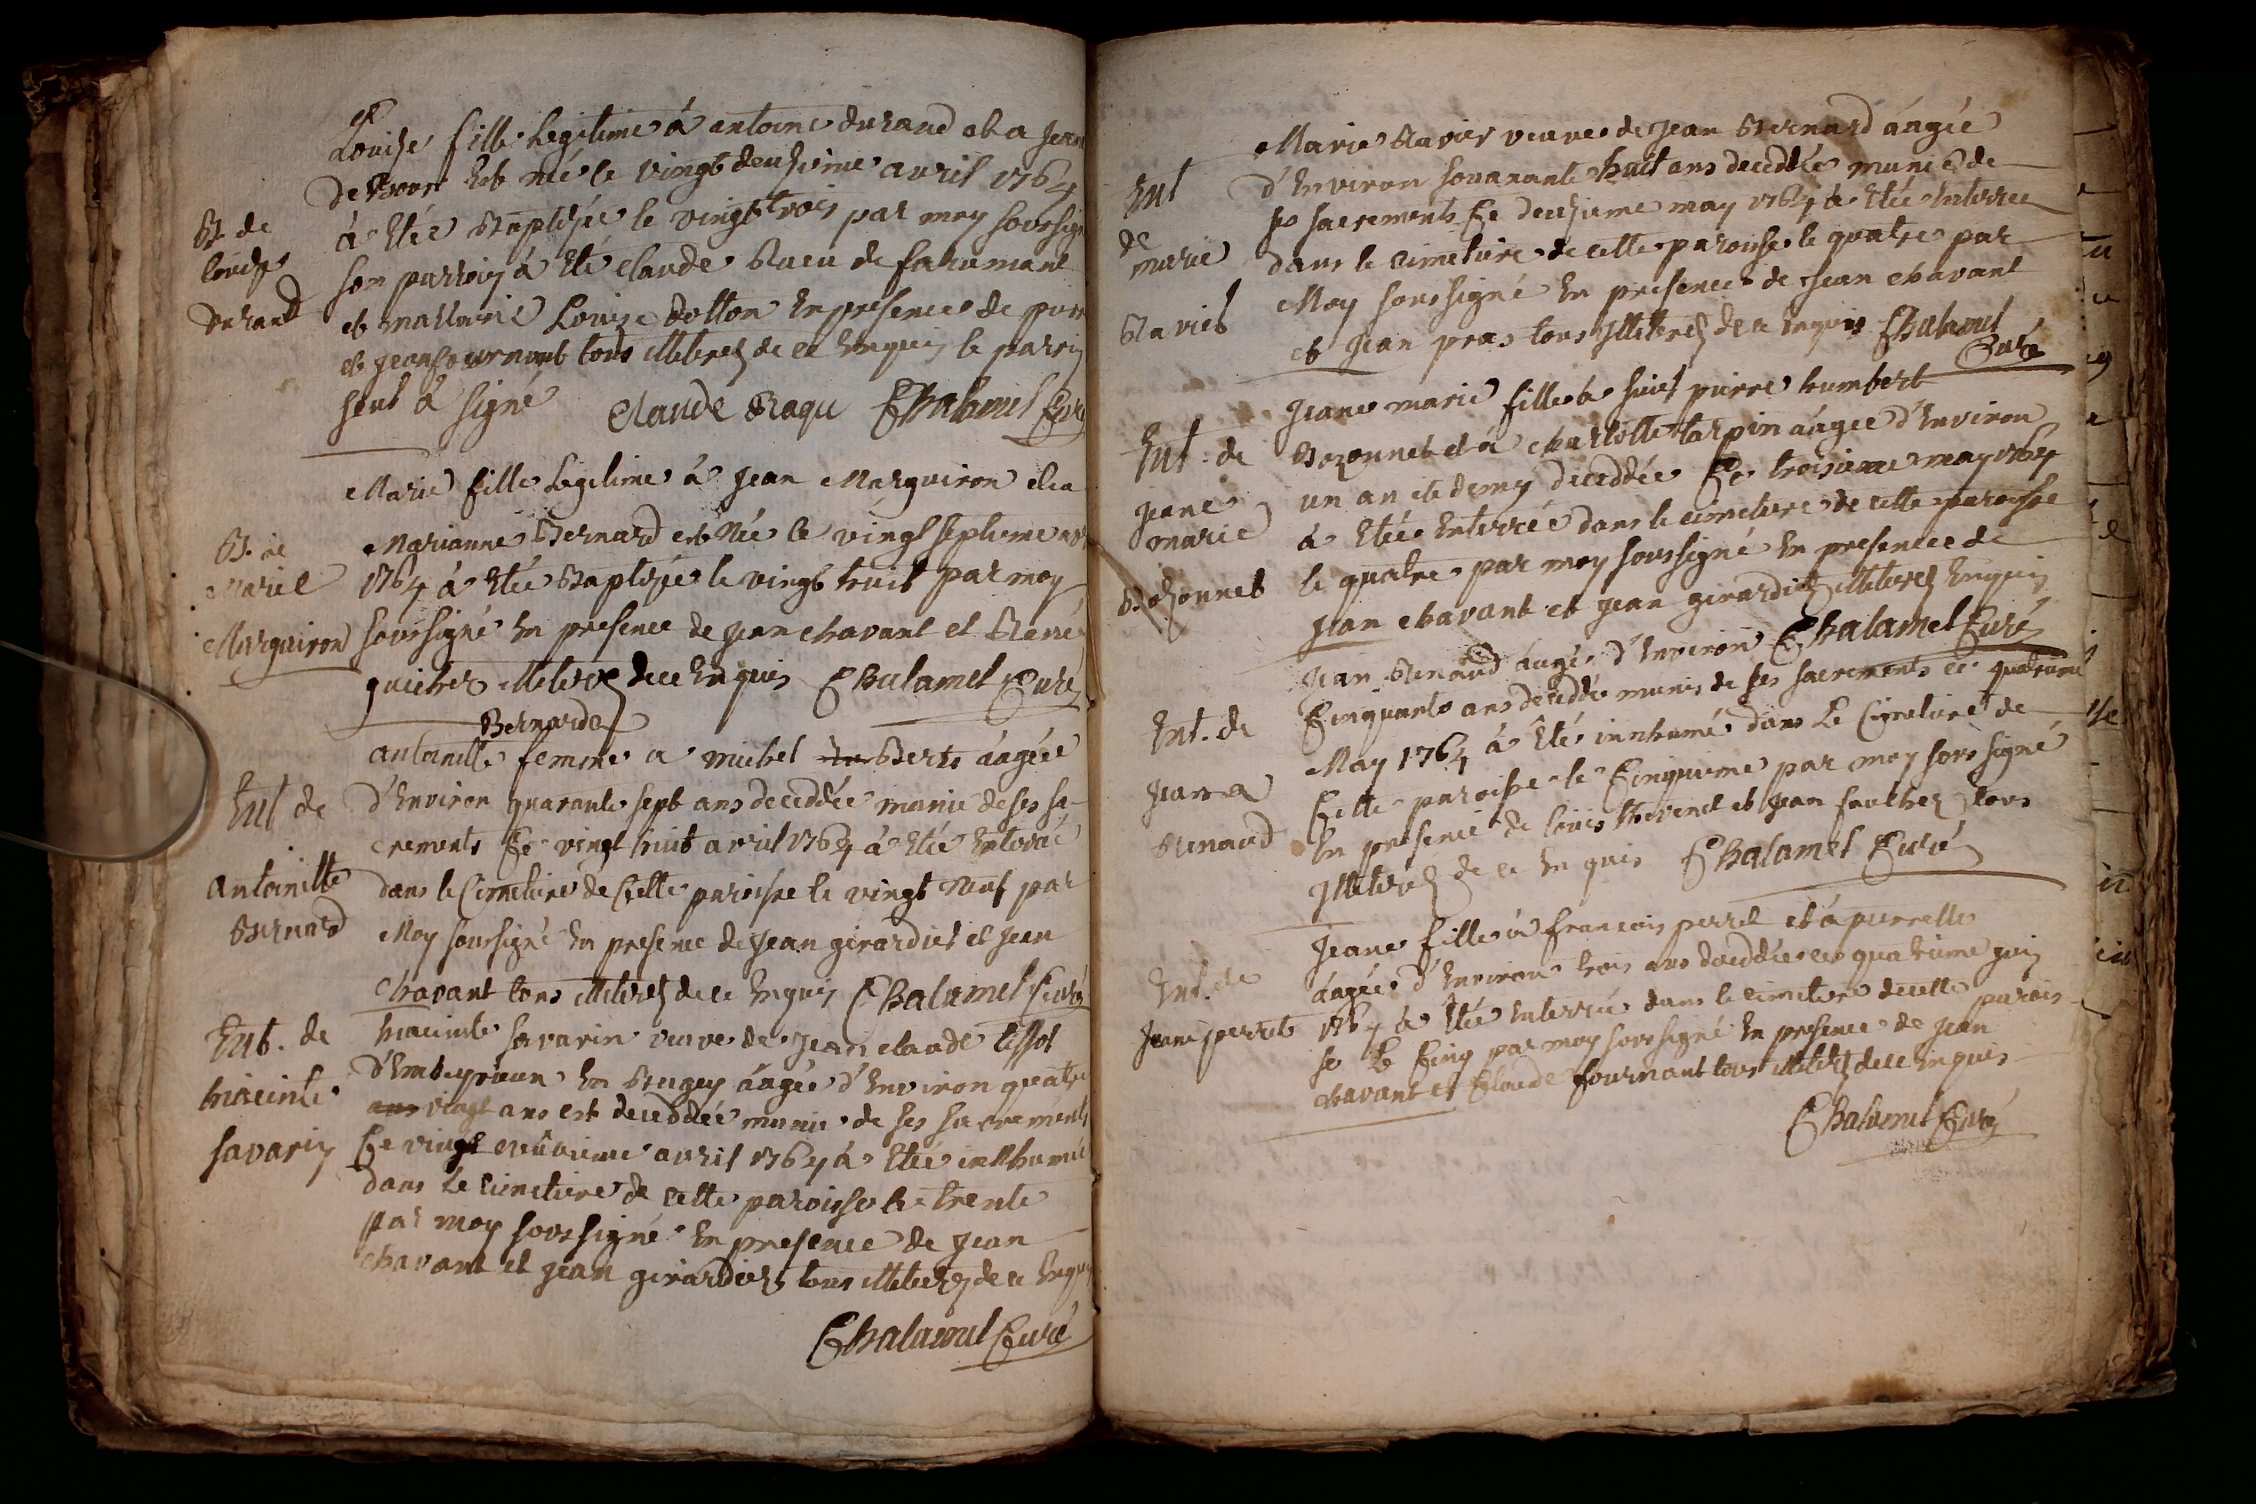 B. de
Louise
Durand
Louise fille Legitime à antoine durand et a Jean
est née le vingt deuxieme avril 1764
à Etée Baptisée le vingt trois par moy soussig
son parrin à Eté claude de
et marraine Louise Dotton En presence de
et jean fournant tous illiteres de ce Enquis le parrin
seul a signé Claude Chalamel Curé
B. de
Marie
Marguiron
Marie fille Legitime à Jean Marguiron et a
Marianne Bernard est Née le vingt septieme
1764 à Etée Baptisée le vingt huit par moy
soussigné En presence de Jean chavant et René
guicher illiteres de ce Enquis Chalamel Curé
Ent de
antoinette
Bernard
Bernarde
antoinette femme a michel Berts áagée
d'Environ quarante sept ans deceddée munie de ses sa-
crements Ce vingt huit avril 1764 à Etée Enterrée
dans le Cimetiere de Cette paroisse le vingt Neuf par
Moy soussigné En presence de Jean girardiet et Jean
Chavant tous illiteres de ce Enquis Chalamel Curé
Ent. de
hiacinte
savarin
hiacinte savarin veuve de Jean claude tissot
d'Ambeyrieux En Bugey áagée d'Environ quatre
ans vingt ans est deceddée munie de ses sacrements
Ce vingt neuvieme avril 1764 à Etée inhumée
dans Le cimetiere de cette paroisse le trente
par moy soussigné En presence de Jean
chavant et jean girardiet tous illiteres de ce Enquis
Chalamel Curé
Ent
de
marie
Raviet
Marie Ravier veuve de Jean Bernard áagée
d'Environ soixante huit ans deceddée munie de
ses sacrements Ce deuxieme may 1764 à Etée Enterrée
dans le cimetiere de cette paroisse le quatre par
Moy soussigné En presence de Jean chavant
et Jean pras tous illiteres de ce Enquis Chalamel
Curé
Ent. de
jeane
marie
Bozonnet
Jeane marie fille a pierre humbert
Bozonnet et à charlotte tarpin áagée d'Environ
un an et demy deceddée Ce troisieme may 1764
à Etée Enterrée dans le cimetiere de cette paroisse
le quatre par moy soussigné En presence de
jean chavant et jean girardiet illiteres Enquis
Chalamel Curé
Ent. de
Jean
Renaud
Jean Renaud áagé d'Environ
Cinquante ans deceddé munis de ses sacrements ce quatrieme
May 1764 à Eté innhumé dans Le Cimetiere de
Cette paroisse le Cinquieme par moy soussigné
En presence de louis thevenet et Jean tous
illiteres de ce Enquis Chalamel Curé
Ent. de
Jeane perret
Jeane fille à francois perret et à pierrette
áagée d'Environ trois ans deceddée ce quatrieme juin
1764 à Etée Enterrée dans le cimetiere de cette parois
se Le Cinq par moy soussigné En presence de Jean
chavant et Claude fournant tous illiteres de ce Enquis
Chalamel Curé